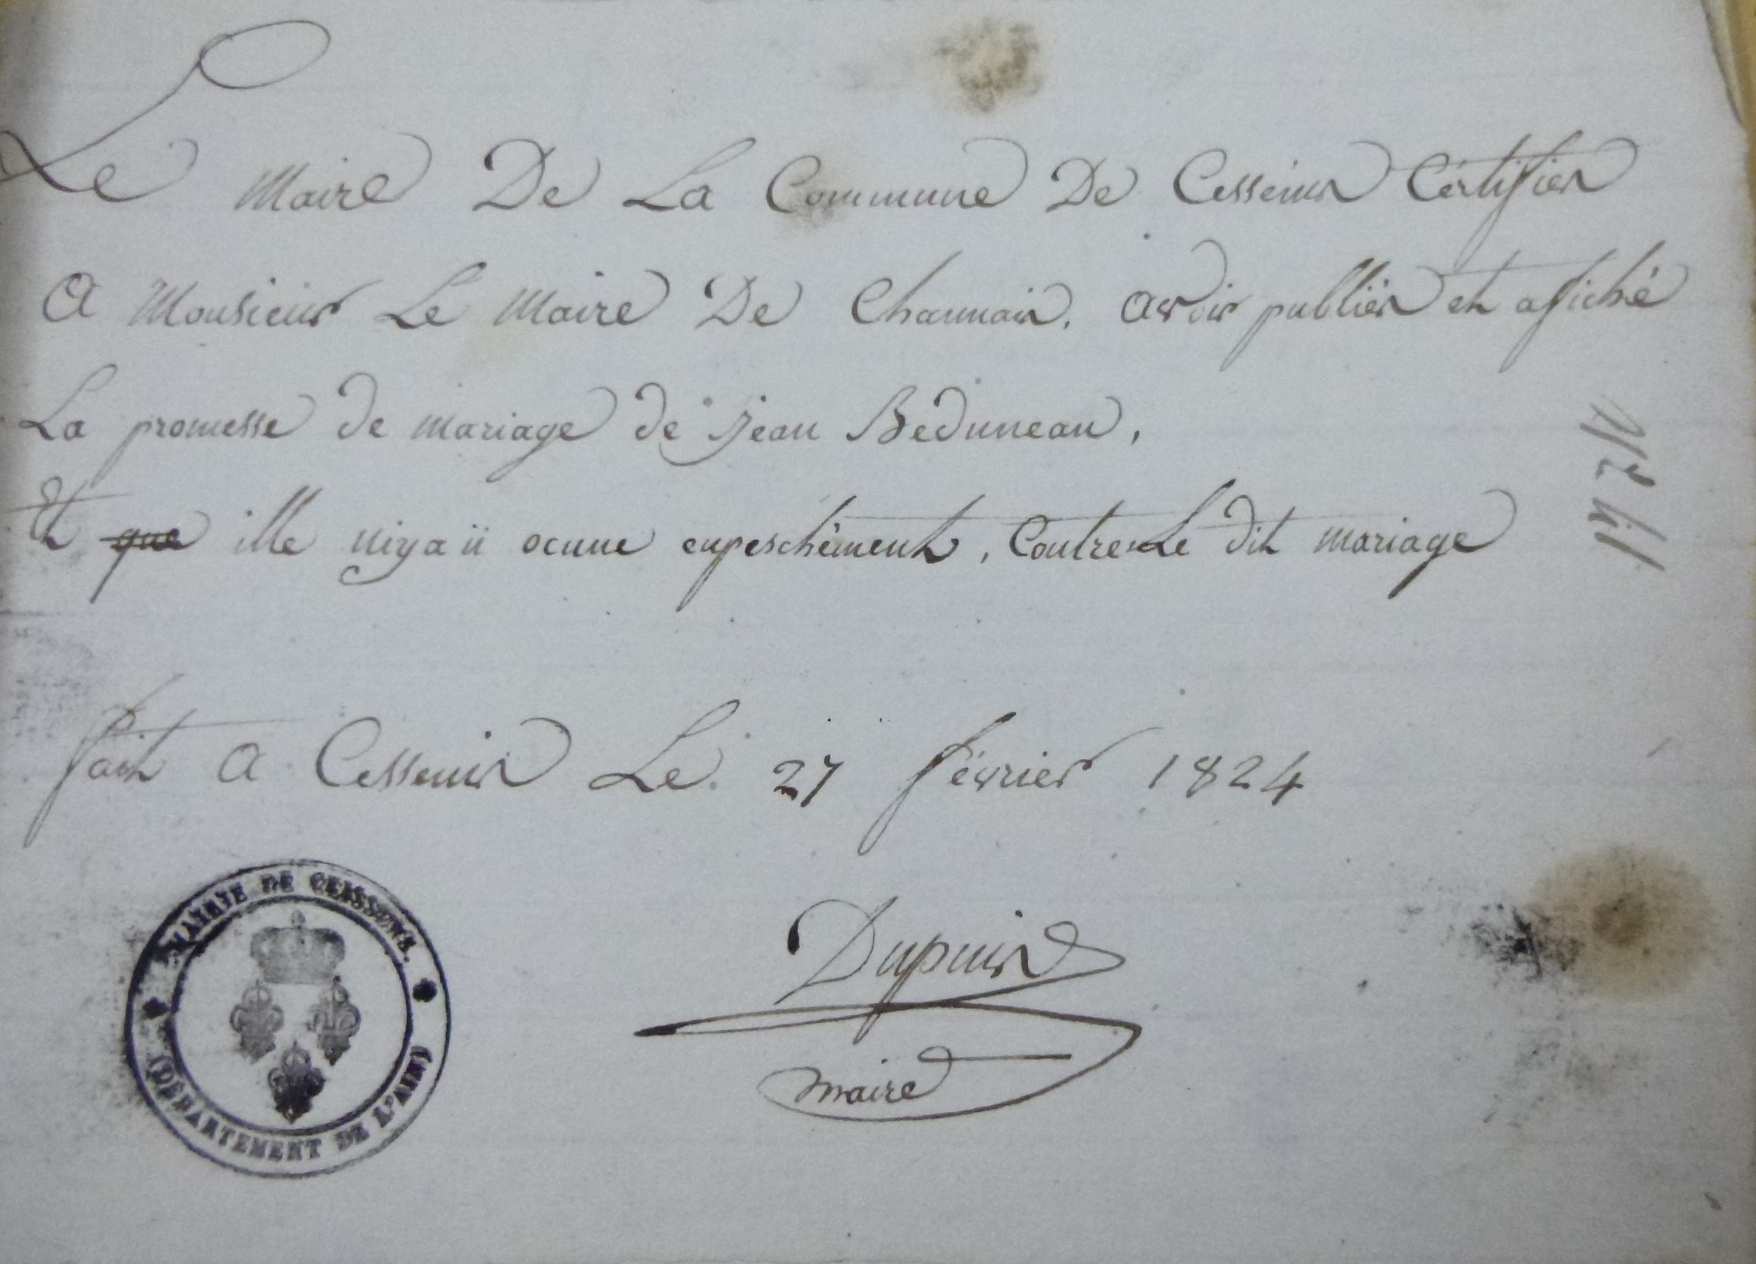 Le Maire De La Commune De Cesseins Certifier
A Monsieur Le Maire De Charnais. avoir publiér et afiché
La promesse de mariage de jean Beduneau,
Et que ille niyaü ocune enpeschément, Contre Le dit mariage
fait A Cesseins Le 27 février 1824
Dupuis
maire
MAIRIE DE CEISSEINS.
(DÉPARTEMENT DE L'AIN)